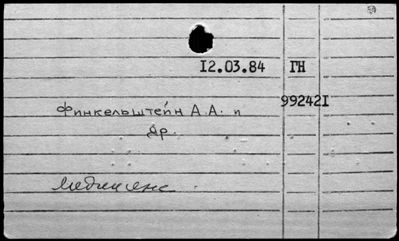 12.03.84 ГН
992421
Финкельштейн А.А. и
др.
Медицина